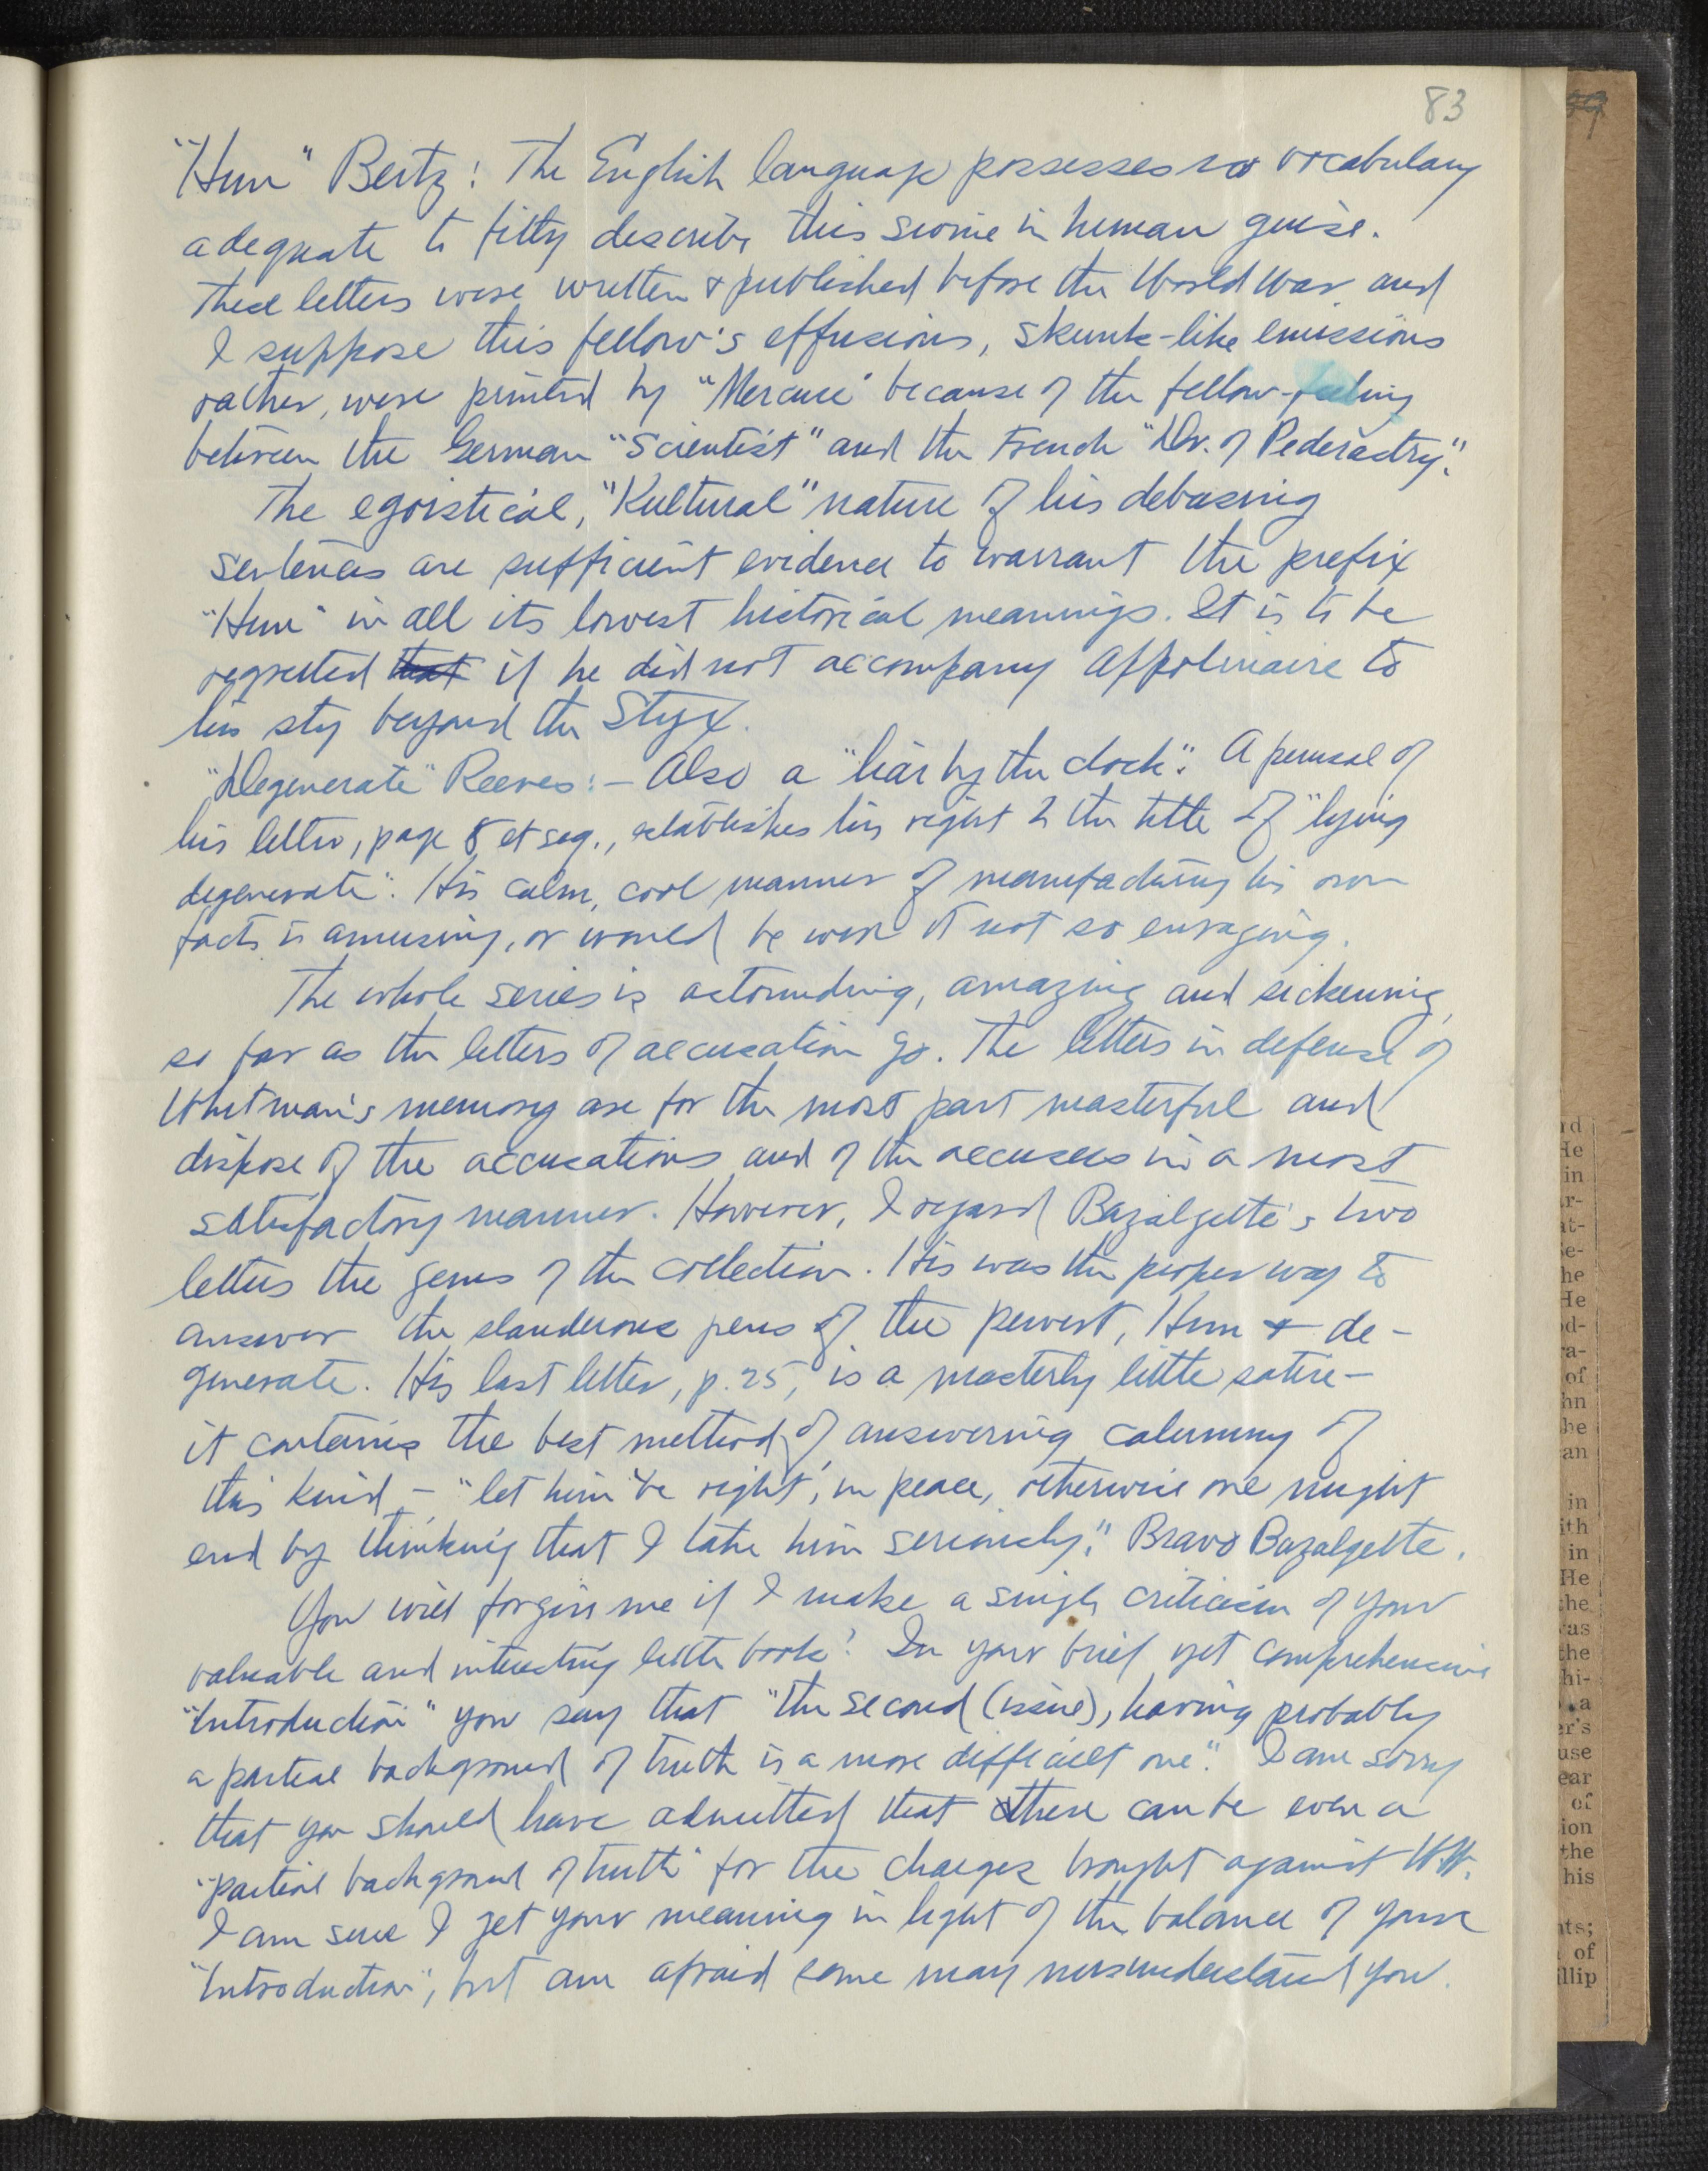 83
"Hun" Bertz: The English language possesses no vocabulary
adequate to fitly describe this swine in human guise.
These letters were written & published before the World War and
I suppose this fellow's effusions, skunk-like emissions
rather, were printed by "Mercure" because of the fellow-feeling
between the German "Scientist" and the French "Dr. of Pederastry."
The egoistical, "Kultural" nature of his debasing
sentences are sufficient evidence to warrant the prefix
"Hun" in all its lowest historical meanings. It is to be
regretted that if he did not accompany Appolinaire to
his sty beyond the Styx.
"Degenerate" Reeves:- Also a "liar by the clock". A perusal of
his letter, page 8 et seq., establishes his right to the title of "lying
degenerate". His calm, cool manner of manufacturing his own
facts is amusing, or would be were it not so enraging.
The whole series is astounding, amazing and sickening,
so far as the letters of accusation go. The letters in defense of
Whitman's memory are for the most part masterful and
dispose of the accusations and of the accusers in a most
satisfactory manner. However, I regard Bazalgette's two
letters the gems of the collection. His was the proper way to
answer the slanderous pens of the pervert, Hun & de-
generate. His last letter, p. 25, is a masterly little satire-
it contains the best method of answering calumny of
this kind - "let him 'be right', in peace, otherwise one might
end by thinking that I take him seriously." Bravo Bazalgette.
You will forgive me if I make a single criticism of your
valuable and interesting little book? In your brief yet comprehensive
"Introduction" you say that "the second (issue), having probably
a partial background of truth is a more difficult one". I am sorry
that you should have admitted that there can be even a
"partial background of truth" for the charges brought against W.W.
I am sure I get your meaning in light of the balance of your
"Introduction", but am afraid some may misunderstand you.
rd
He
in
r-
at-
se-
he
He
od-
ra-
of
hn
he
an
in
ith
in
He
the
as
the
hi-
a
er's
use
ear
of
ion
the
his
nts;
of
illip